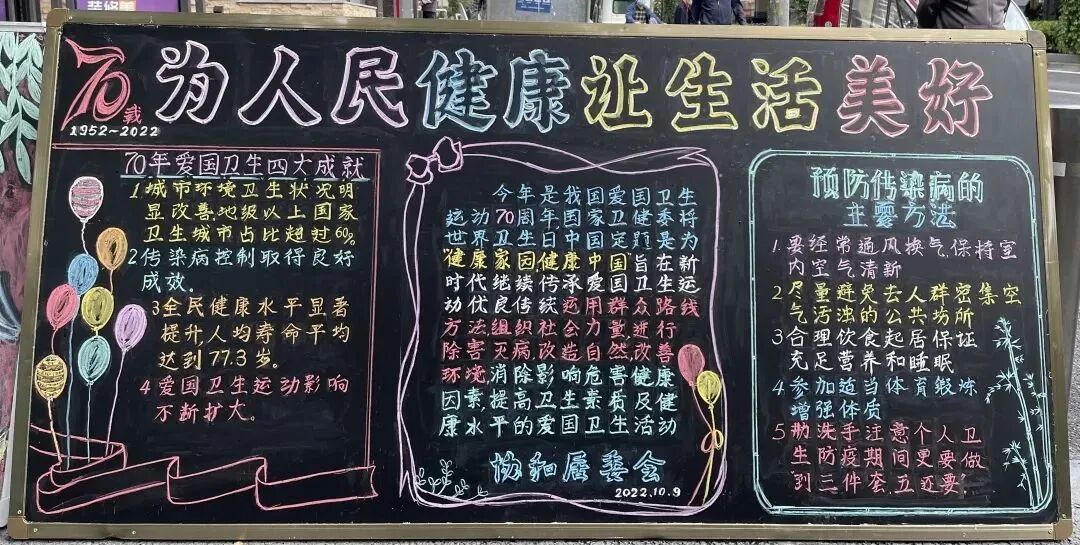 装修美
70载
1952~2022
为人民健康让生活美好
70年爱国卫生四大成就
1城市环境卫生状况明
显改善地级以上国家
卫生城市占比超过60%
2传染病控制取得良好
成效。
3全民健康水平显著
提升人均寿命平均
达到77.3岁。
4爱国卫生运动影响
不断扩大。
今年是我国爱国卫生
运动70周年国家卫健委将
世界卫生日中国定题是为
健康家园,健康中国旨在新
时代继续传承爱国卫生运
动优良传统运用群众路线
方法组织社会力量进行
除害灭病,改造自然改善
环境,消除影响危害健康
因素,提高卫生素质及健
康水平的爱国卫生活动
协和居委会
2022.10.9
预防传染病的
主要方法
1.要经常通风换气,保持室
内空气清新
2尽量避免去人群密集空
气污浊的公共场所
3合理饮食起居保证
充足营养和睡眠
4参加适当体育锻炼
增强体质
5勤洗手注意个人卫
生防疫期间更要做
到三件套,五还要